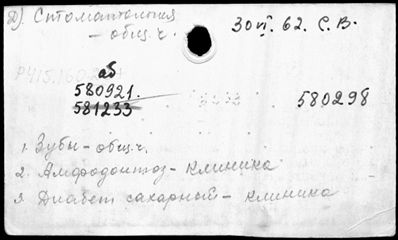 д). Стоматология 30 VI. 62. С.В.
– общ. ч.
Р415.160
аб
580921.
581233 580298
1. Зубы – общ. ч.
2. Амфодонтоз – клиника
3. Диабет сахарный – клиника